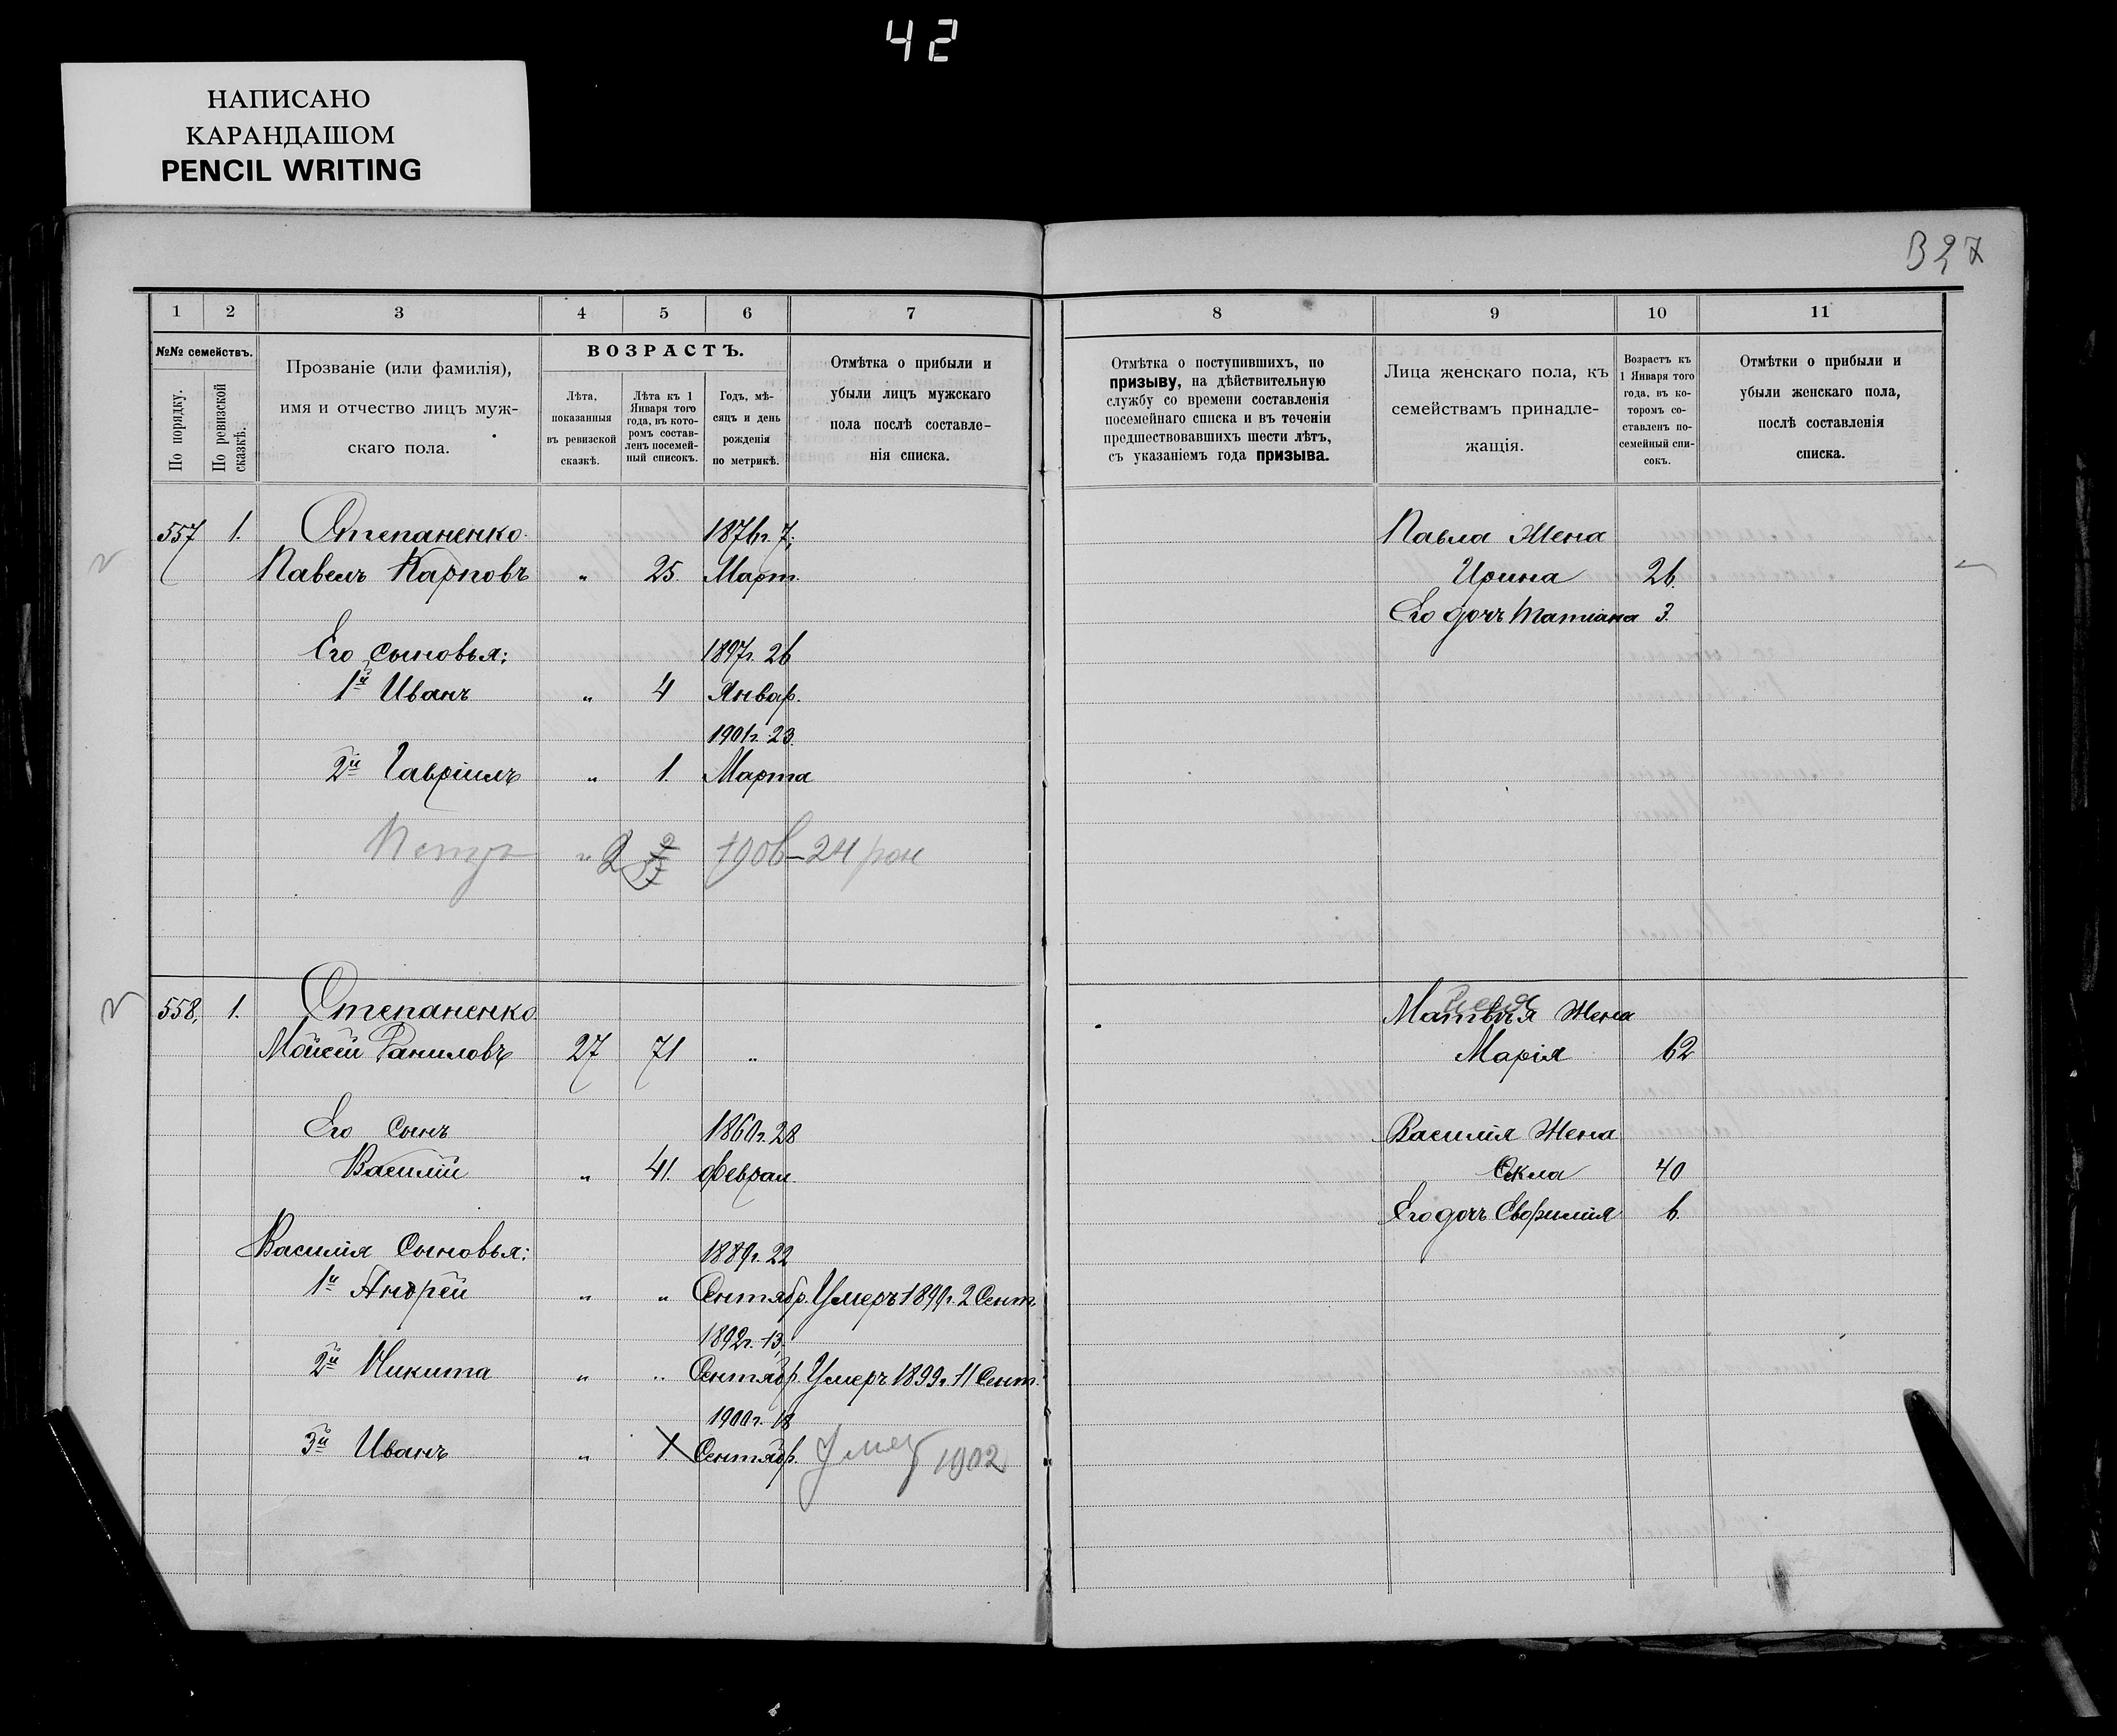 42
НАПИСАНО
КАРАНДАШОМ
PENCIL WRITING
1 2 3 4 5 6 7
№№ семействъ.
По порядку.
По ревизской сказкѣ.
Прозваніе (или фамилія),
имя и отчество лицъ муж-
скаго пола.
ВОЗРАСТЪ.
Лѣта,
показанныя
въ ревизской
сказкѣ.
Лѣта къ 1
Января того
года, въ кото-
ромъ состав-
ленъ посемей-
ный списокъ.
Годъ, мѣ-
сяцъ и день
рожденія
по метрикѣ.
Отмѣтка о прибыли и
убыли лицъ мужскаго
пола послѣ составле-
нія списка.
557 1. Степаненко. 1876г. 7,
Павелъ Карповъ " 25. Март.
Его сыновья: 1897г. 26
1й Иванъ " 4 Январ.
1901г. 23.
2й Гавріилъ " 1. Марта
Петръ " 2 1906-24
558, 1. Степаненко.
Моисей Даниловъ 27 71 "
Его сынъ 1860г. 28
Василій " 41. Феврал.
Василія сыновья: 1889г. 22
1й Андрей " " Сентябр. Умеръ 1899г. 2 Сент.
1892г. 13,
2й Никита " " Сентябр. Умеръ 1899г. 11 Сент.
1900г. 18
3й Иванъ " 1 Сентябр. Умер 1902
8 9 10 11
Отмѣтка о поступившихъ, по
призыву, на дѣйствительную
службу со времени составленія
посемейнаго списка и въ теченіи
предшествовавшихъ шести лѣтъ,
съ указаніемъ года призыва.
Лица женскаго пола, къ
семействамъ принадле-
жащія.
Возрастъ къ
1 Января того
года, въ ко-
торомъ со-
ставленъ по-
семейный спи-
сокъ.
Отмѣтки о прибыли и
убыли женскаго пола,
послѣ составленія
списка.
Павла Жена
Ирина 26.
Его дочь Татіана 3.
Матвѣя Жена
Марія 62
Василія Жена
Ѳекла 40
Его дочь Евфимія 6.